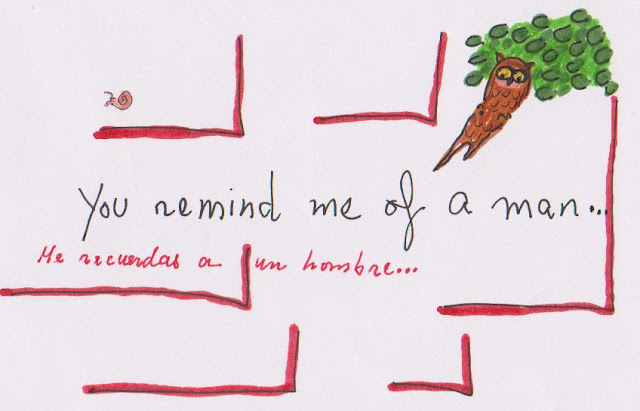 You remind me of a man...
Me recuerdas a un hombre...